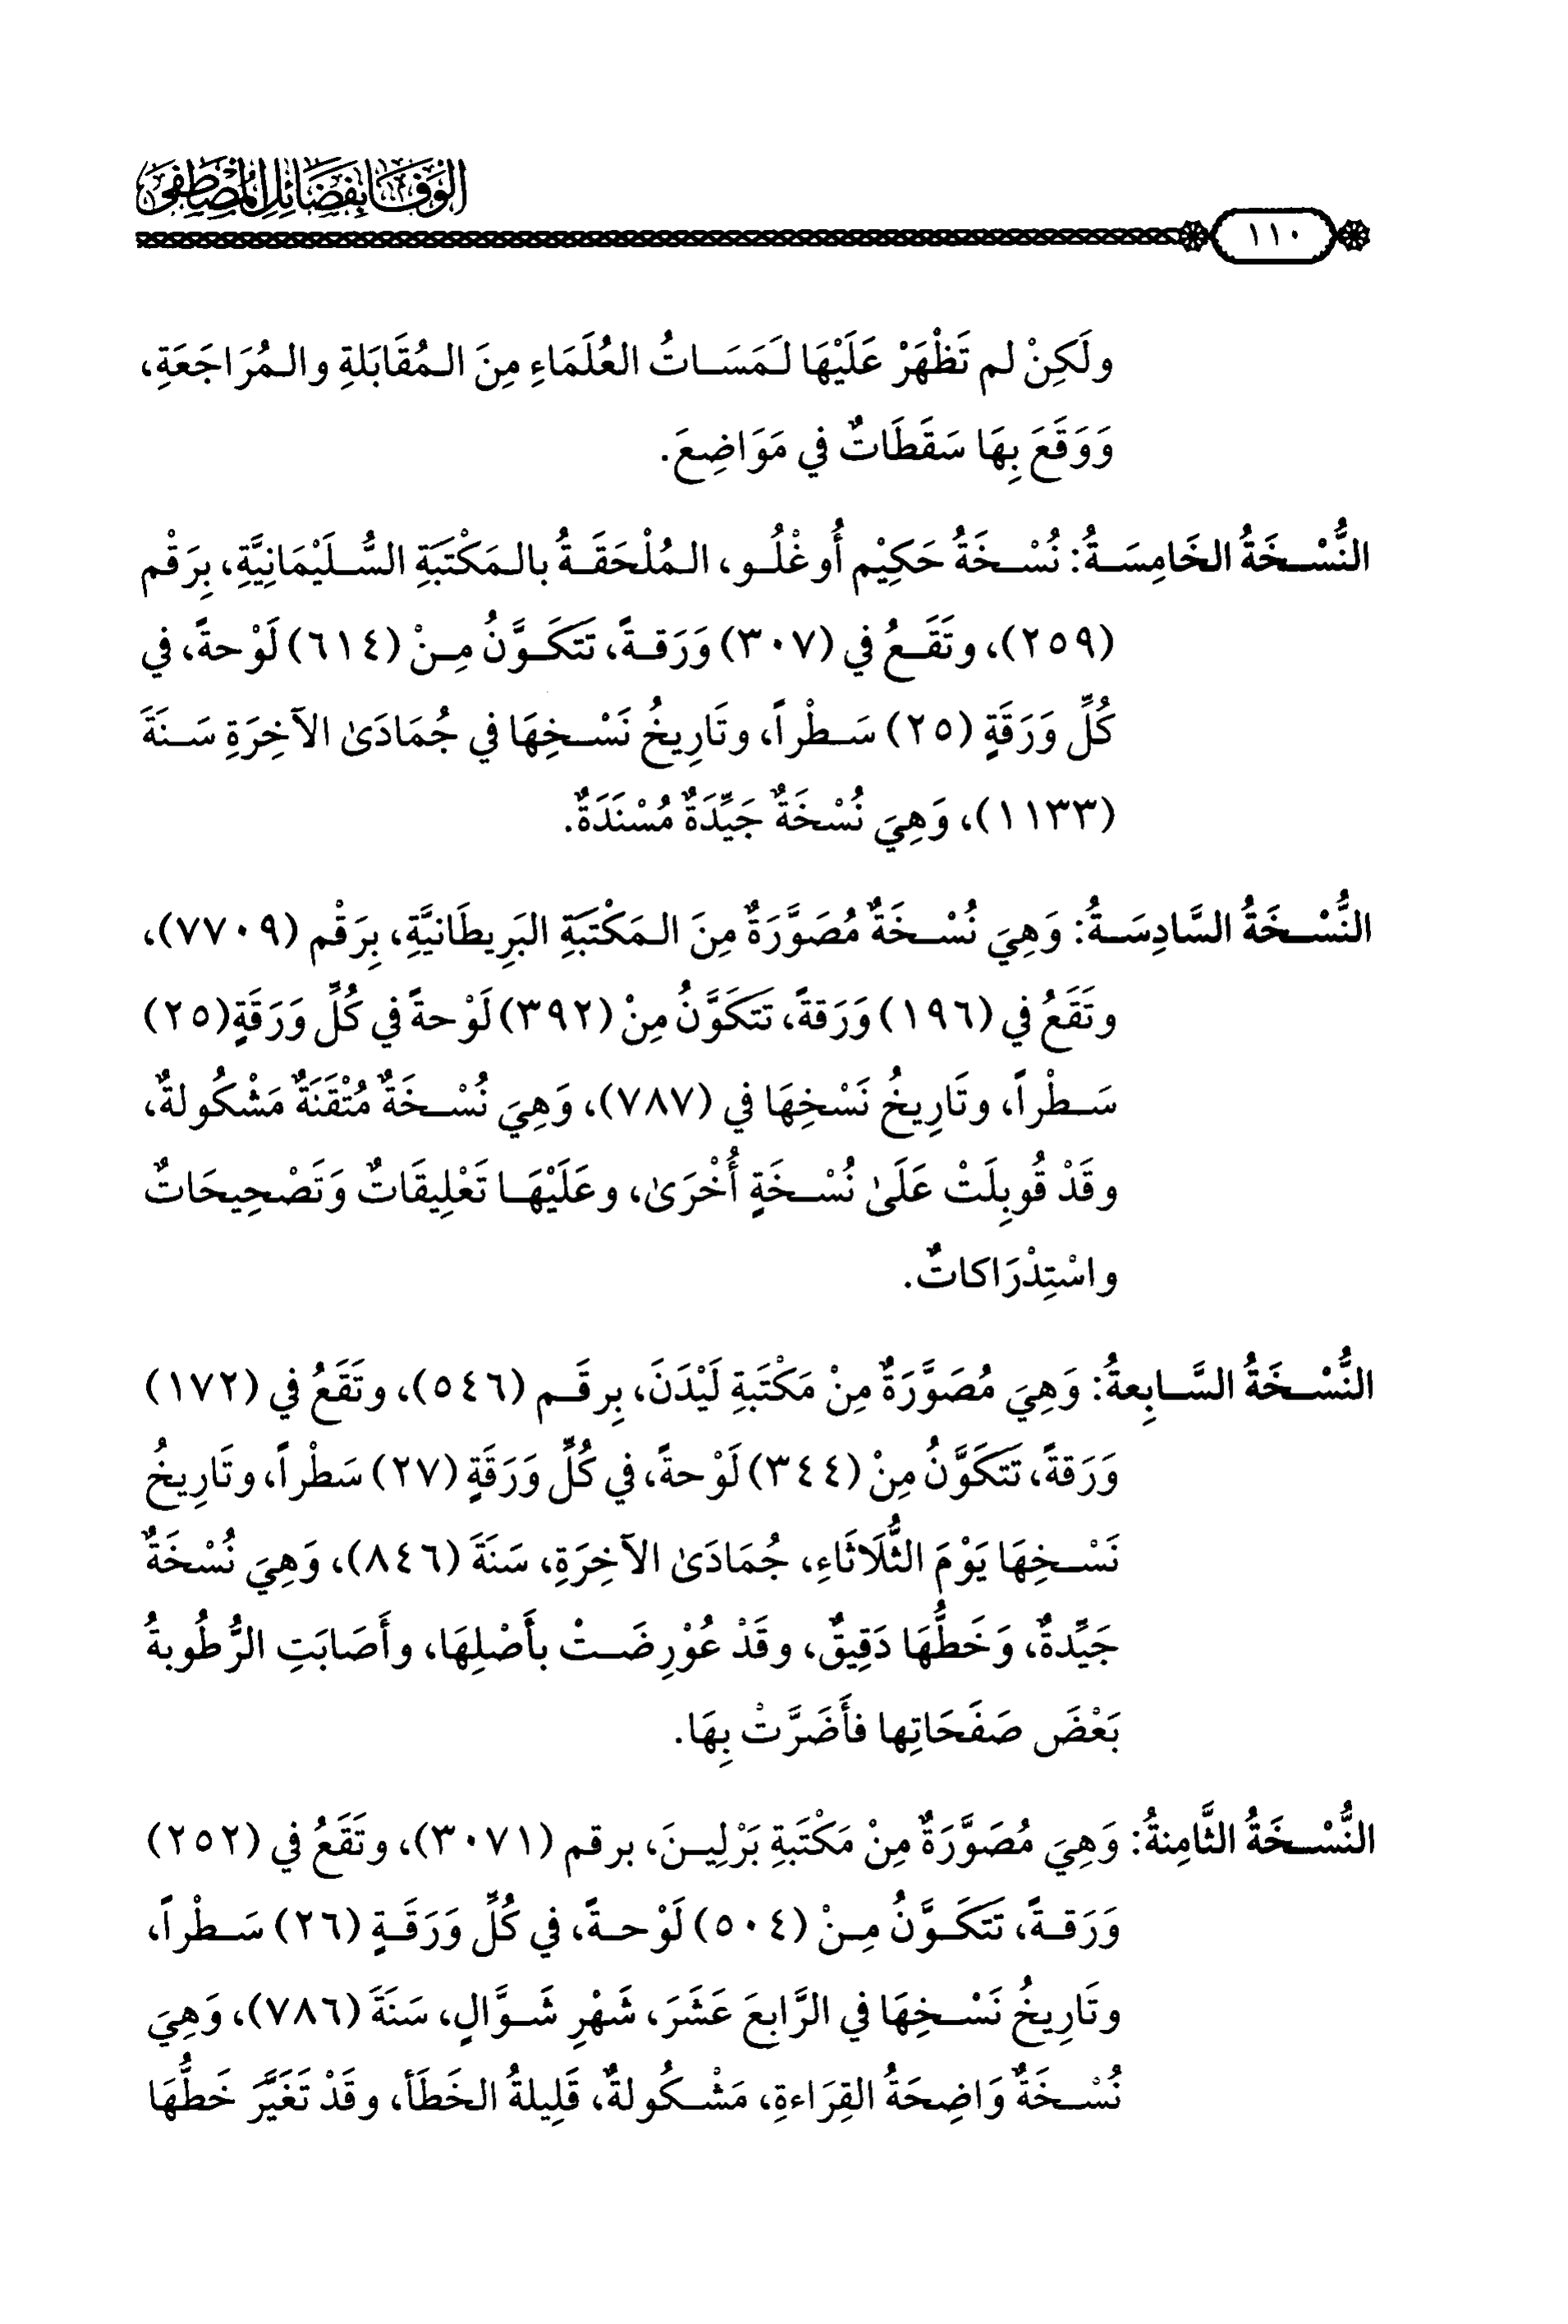 الوفا بفضائل المصطفى
١١٠
ولَكِنْ لم تَظْهَرْ عَلَيْهَا لَمَسَاتُ العُلَمَاءِ مِنَ المُقَابَلةِ والمُرَاجَعَةِ،
وَوَقَعَ بِهَا سَقَطَاتٌ في مَوَاضِعَ.
النُّسْخَةُ الخَامِسَةُ: نُسْخَةُ حَكِيْم أُوغْلُو، المُلْحَقَةُ بالمَكْتَبَةِ السُّلَيْمَانِيَّةِ، بِرَقْم
(٢٥٩)، وتَقَعُ في (٣٠٧) وَرَقةً، تَتَكَوَّنُ مِنْ (٦١٤) لَوْحةً، في
كُلِّ وَرَقَةٍ (٢٥) سَطْراً، وتَارِيخُ نَسْخِهَا في جُمَادَىٰ الآخِرَةِ سَنَةَ
(١١٣٣)، وَهِيَ نُسْخَةٌ جَيِّدَةٌ مُسْنَدَةٌ.
النُّسْخَةُ السَّادِسَةُ: وَهِيَ نُسْخَةٌ مُصَوَّرَةٌ مِنَ المَكْتَبَةِ البَرِيطَانيَّةِ، بِرَقْم (٧٧٠٩)،
وتَقَعُ في (١٩٦) وَرَقةً، تَتَكَوَّنُ مِنْ (٣٩٢) لَوْحةً في كُلِّ وَرَقَةٍ (٢٥)
سَطْراً، وتَارِيخُ نَسْخِهَا في (٧٨٧)، وَهِيَ نُسْخَةٌ مُتْقَنَةٌ مَشْكُولةٌ،
وقَدْ قُوبِلَتْ عَلَىٰ نُسْخَةٍ أُخْرَىٰ، وعَلَيْهَا تَعْلِيقَاتٌ وَتَصْحِيحَاتٌ
واسْتِدْرَاكاتٌ.
النُّسْخَةُ السَّابِعةُ: وَهِيَ مُصَوَّرَةٌ مِنْ مَكْتَبَةِ لَيْدَنَ، بِرقَم (٥٤٦)، وتَقَعُ في (١٧٢)
وَرَقةً، تَتَكَوَّنُ مِنْ (٣٤٤) لَوْحةً، في كُلِّ وَرَقَةٍ (٢٧) سَطْراً، وتَارِيخُ
نَسْخِهَا يَوْمَ الثُّلَاثَاءِ، جُمَادَىٰ الآخِرَةِ، سَنَةَ (٨٤٦)، وَهِيَ نُسْخَةٌ
جَيِّدةٌ، وَخَطُّهَا دَقِيقٌ، وقَدْ عُوْرِضَتْ بأَصْلِهَا، وأَصَابَتِ الرُّطُوبةُ
بَعْضَ صَفَحَاتِها فأَضَرَّتْ بِهَا.
النُّسْخَةُ الثَّامِنةُ: وَهِيَ مُصَوَّرَةٌ مِنْ مَكْتَبَةِ بَرْلِينَ، برقم (٣٠٧١)، وتَقَعُ في (٢٥٢)
وَرَقةً، تَتَكَوَّنُ مِنْ (٥٠٤) لَوْحةً، في كُلِّ وَرَقَةٍ (٢٦) سَطْراً،
وتَارِيخُ نَسْخِهَا في الرَّابعَ عَشَرَ، شَهْرِ شَوَّالٍ، سَنَةَ (٧٨٦)، وَهِيَ
نُسْخَةٌ وَاضِحَةُ القِرَاءةِ، مَشْكُولةٌ، قَلِيلةُ الخَطَأ، وقَدْ تَغَيَّرَ خَطُّهَا